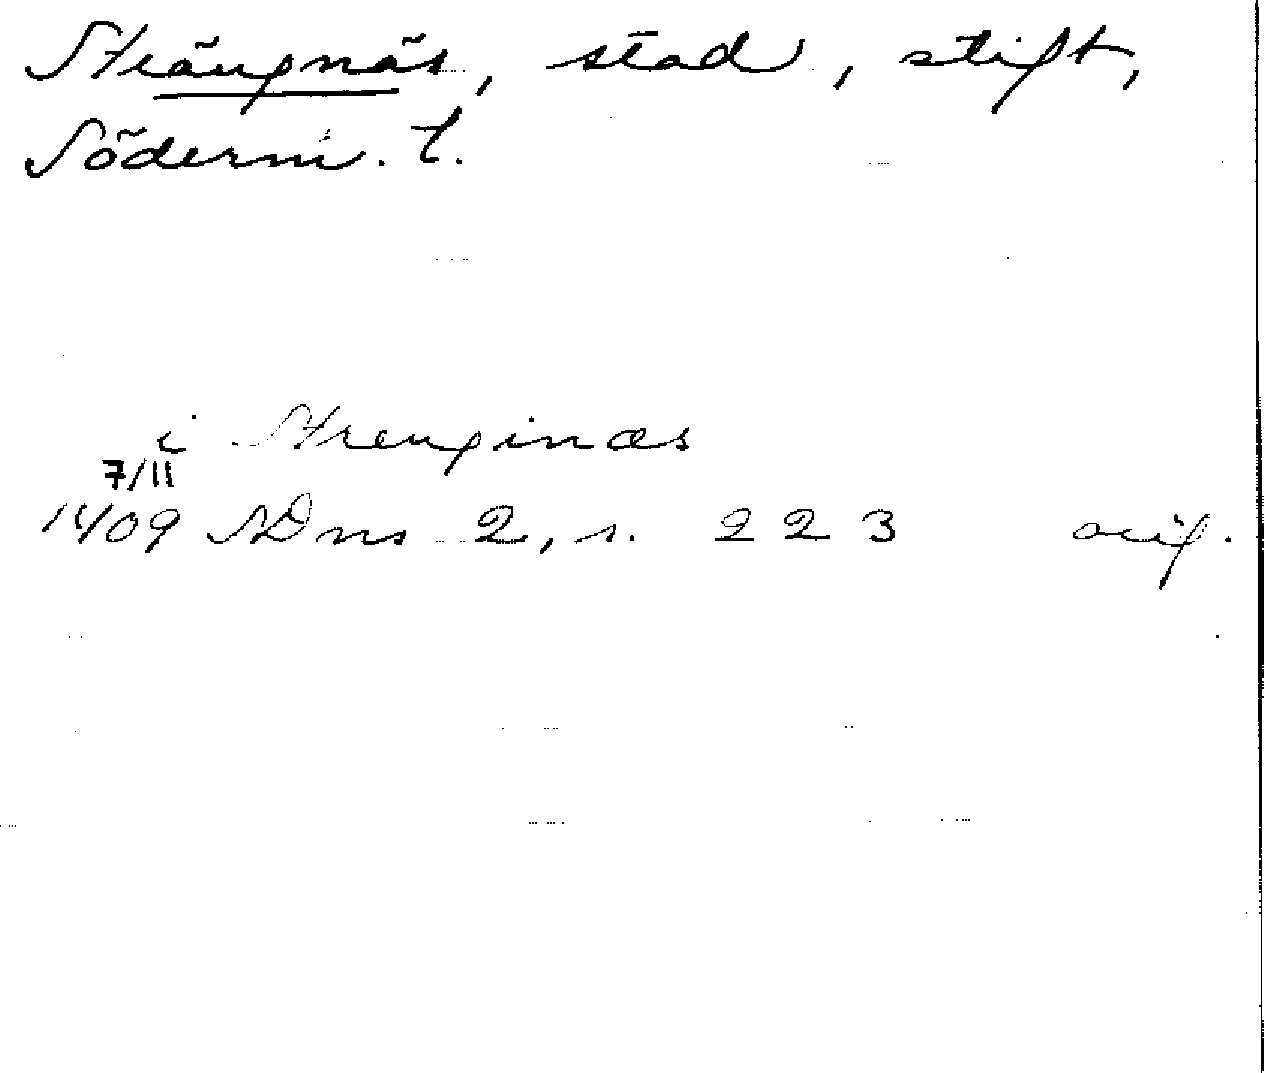 Strängnäs, stad, stift,
Söderm. l.
i Strenginæs
7/11
1409 SDns 2, s. 223 orig.